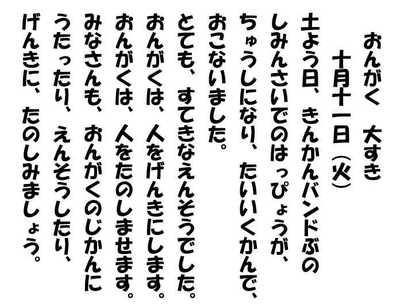 おんがく　大すき
十月十一日（火）
土よう日、きんかんバンドぶの
しみんさいでのはっぴょうが、
ちゅうしになり、たいいくかんで、
おこないました。
とても、すてきなえんそうでした。
おんがくは、人をげんきにします。
おんがくは、人をたのしませます。
みなさんも、おんがくのじかんに
うたったり、えんそうしたり、
げんきに、たのしみましょう。